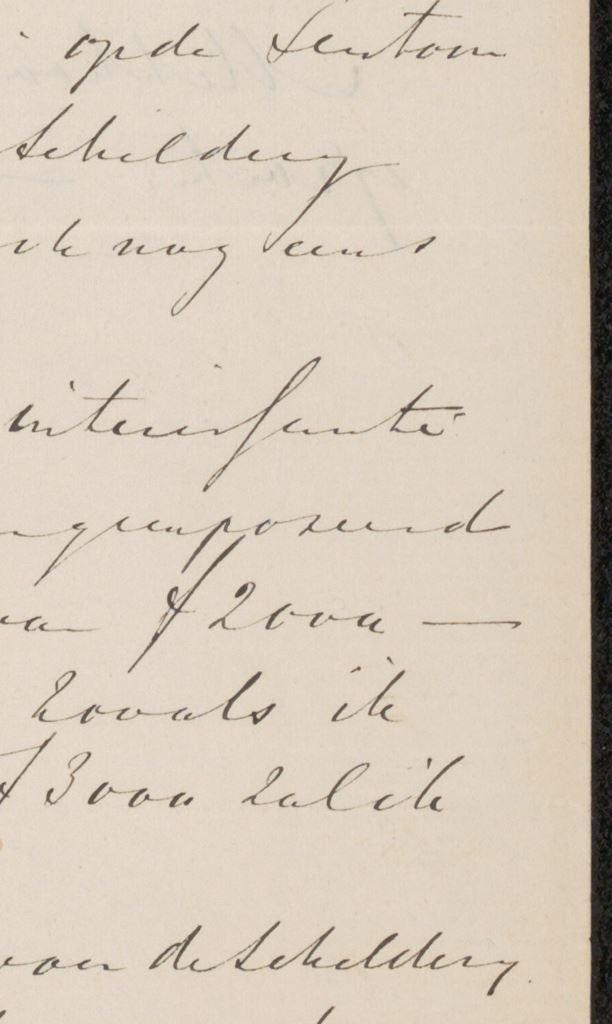 op de Tentoon
Schildery
ik nog eens
interessante
geexposeerd
van f 2000 —
zooals ik
f 3000 zal ik
voor de Schildery